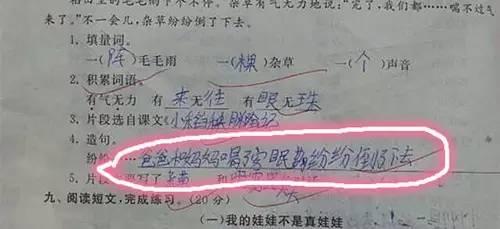 稻田里的毛毛雨下个不停。杂草有气无力地说:“完了,我们都……喘不过气
来了。”不一会儿,杂草纷纷倒了下去。
1. 填量词。
一(阵)毛毛雨 一(棵)杂草 一(个)声音
2. 积累词语。
有气无力 有来无往 有眼无珠
3. 片段选自课文《小稻秧脱险记
4. 造句。
纷纷……爸爸和妈妈喝了安眠药纷纷倒下去
5. 片段 写了 和
九、阅读短文,完成练习。(20分)
(一)我的娃娃不是真娃娃